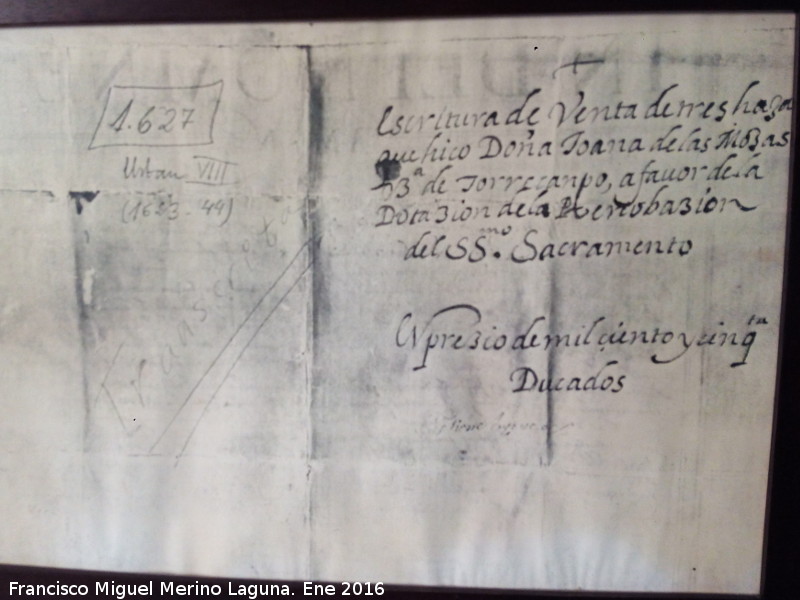 1.627
Urban VIII
(1623-44)
+
Escritura de Venta de tres haza
que hico Doña Joana de las Mozas
de Torrecanpo, a favor de la
Dotazion de la
del SSmo. Sacramento
prezio de mil ciento y cinqta
Ducados
Francisco Miguel Merino Laguna. Ene 2016